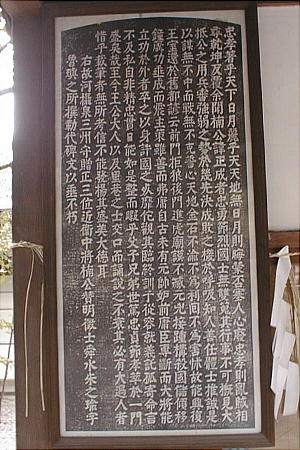 忠孝著乎天下日月麗乎天天地無日月則晦蒙否塞人心廢忠孝則亂賊相
尋乾坤反覆余聞楠公諱正成者忠勇節烈國士無雙蒐其行事不可概見大
抵公之用兵審強弱之勢於幾先決成敗之機於呼吸知人善任體士推誠是
以謀無不中而戰無不克誓心天地金石不渝不為利回不為害怵故能興復
王室還於舊都諺云前門拒狼後門進虎廟謨不臧元兇接踵構殺國儲傾移
鐘簴功垂成而震主策雖善而弗庸自古未有元帥妒前庸臣專斷而大將能
立功於外者卒之以身許國之死靡佗觀其臨終訓子從容就義託孤寄命言
不及私自非精忠貫日能如是整而暇乎父子兄弟世篤忠貞節孝萃於一門
盛矣哉至今王公大人以及里巷之士交口而誦說之不衰其必有大過人者
惜乎載筆者無所考信不能發揚其盛美大德耳
右故河攝泉三州守贈正三位近衛中將楠公贊明徵士舜水朱之瑜字
魯璵之所撰勒代碑文以垂不朽